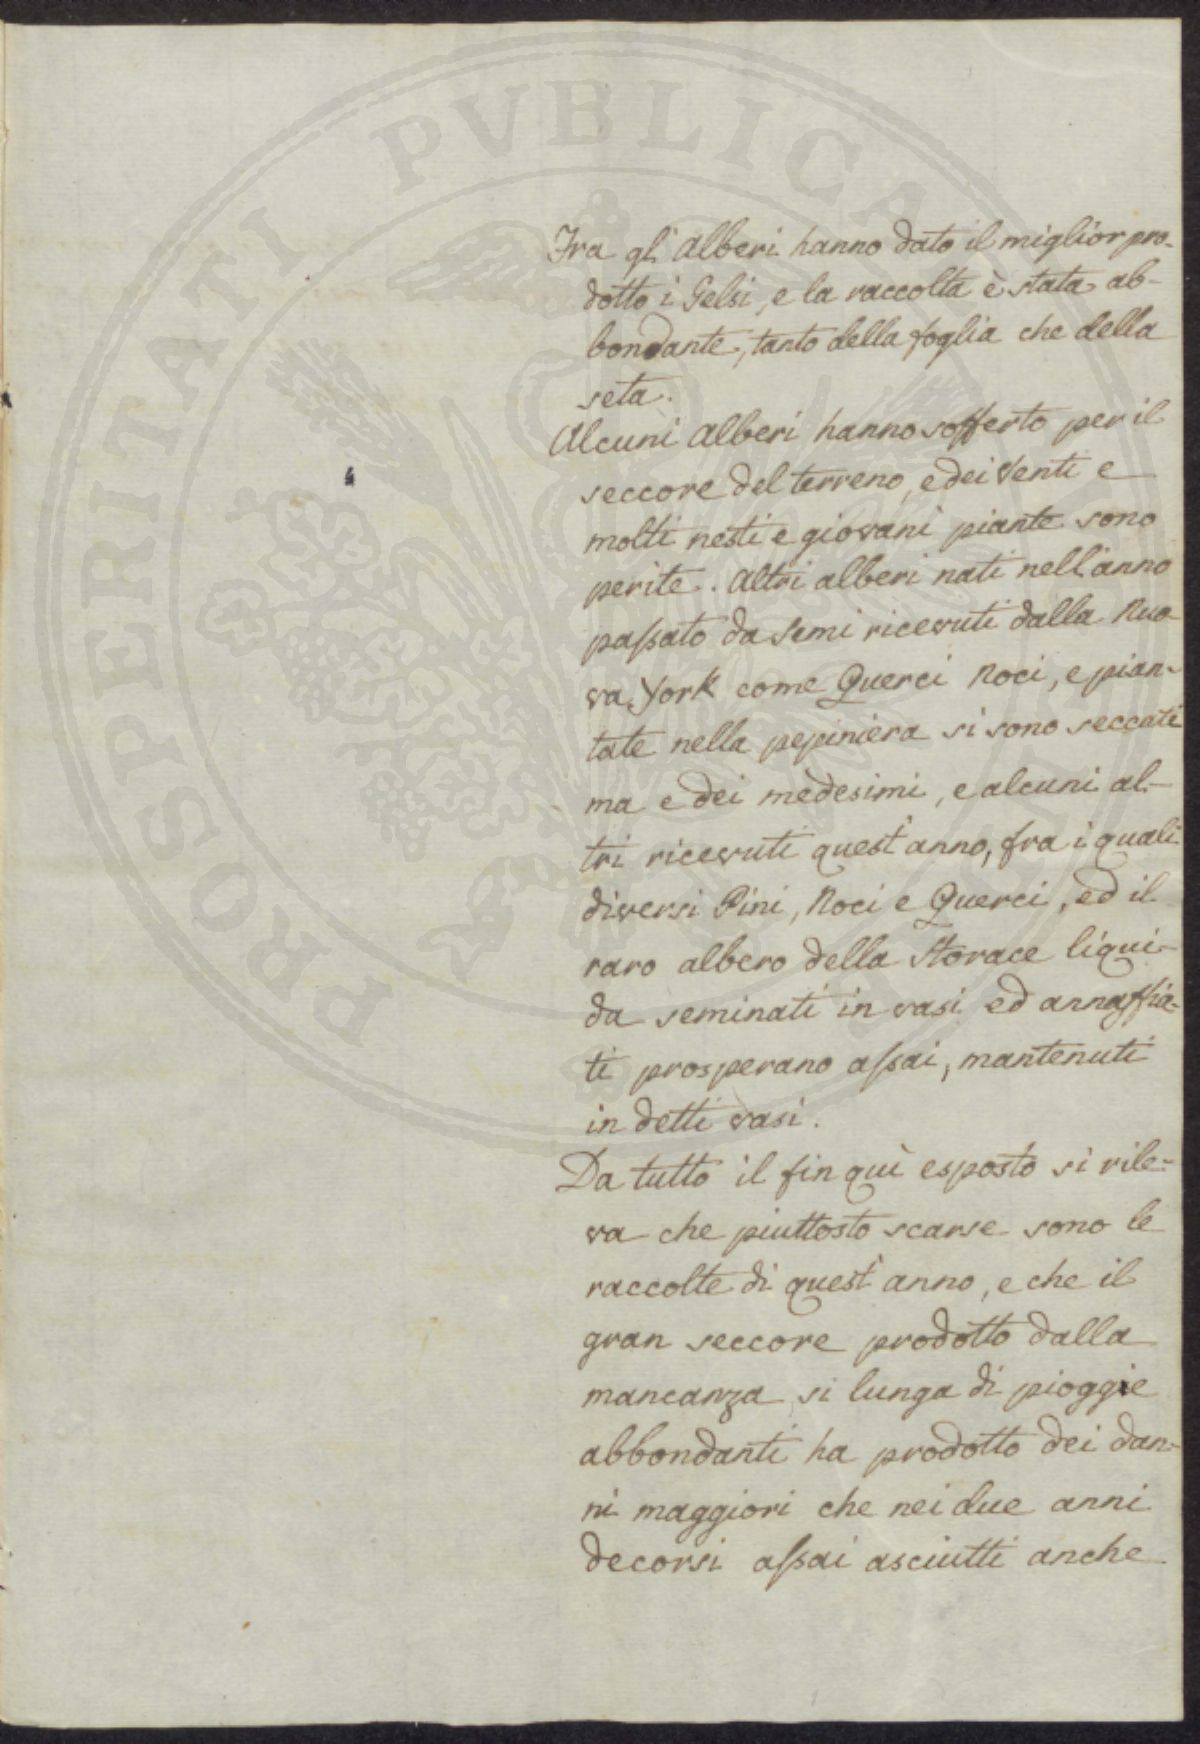 PROSPERITATI PVBLICAE
Fra gl'Alberi hanno dato il miglior pro-
dotto i Gelsi, e la raccolta è stata ab-
bondante, tanto della foglia che della
seta.
Alcuni Alberi hanno sofferto per il
seccore del terreno, e dei Venti e
molti nesti e giovani piante sono
perite. Altri alberi nati nell'anno
passato da Semi ricevuti dalla Nuo-
va York come Querci Noci, e pian-
tate nella pepiniera si sono seccati
ma e dei medesimi, e alcuni al-
tri ricevuti quest'anno, fra i quali
diversi Pini, Noci e Querci, ed il
raro albero della Storace liqui-
da seminati in vasi ed annaffia-
ti prosperano assai, mantenuti
in detti vasi.
Da tutto il fin quì esposto si rile-
va che piuttosto scarse sono le
raccolte di quest'anno, e che il
gran seccore prodotto dalla
mancanza si lunga di pioggie
abbondanti ha prodotto dei dan-
ni maggiori che nei due anni
decorsi assai asciutti anche